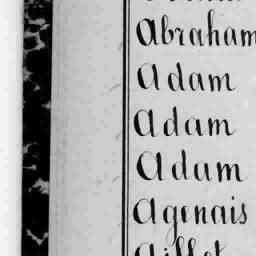 Abraham
Adam
Adam
Adam
Agenais